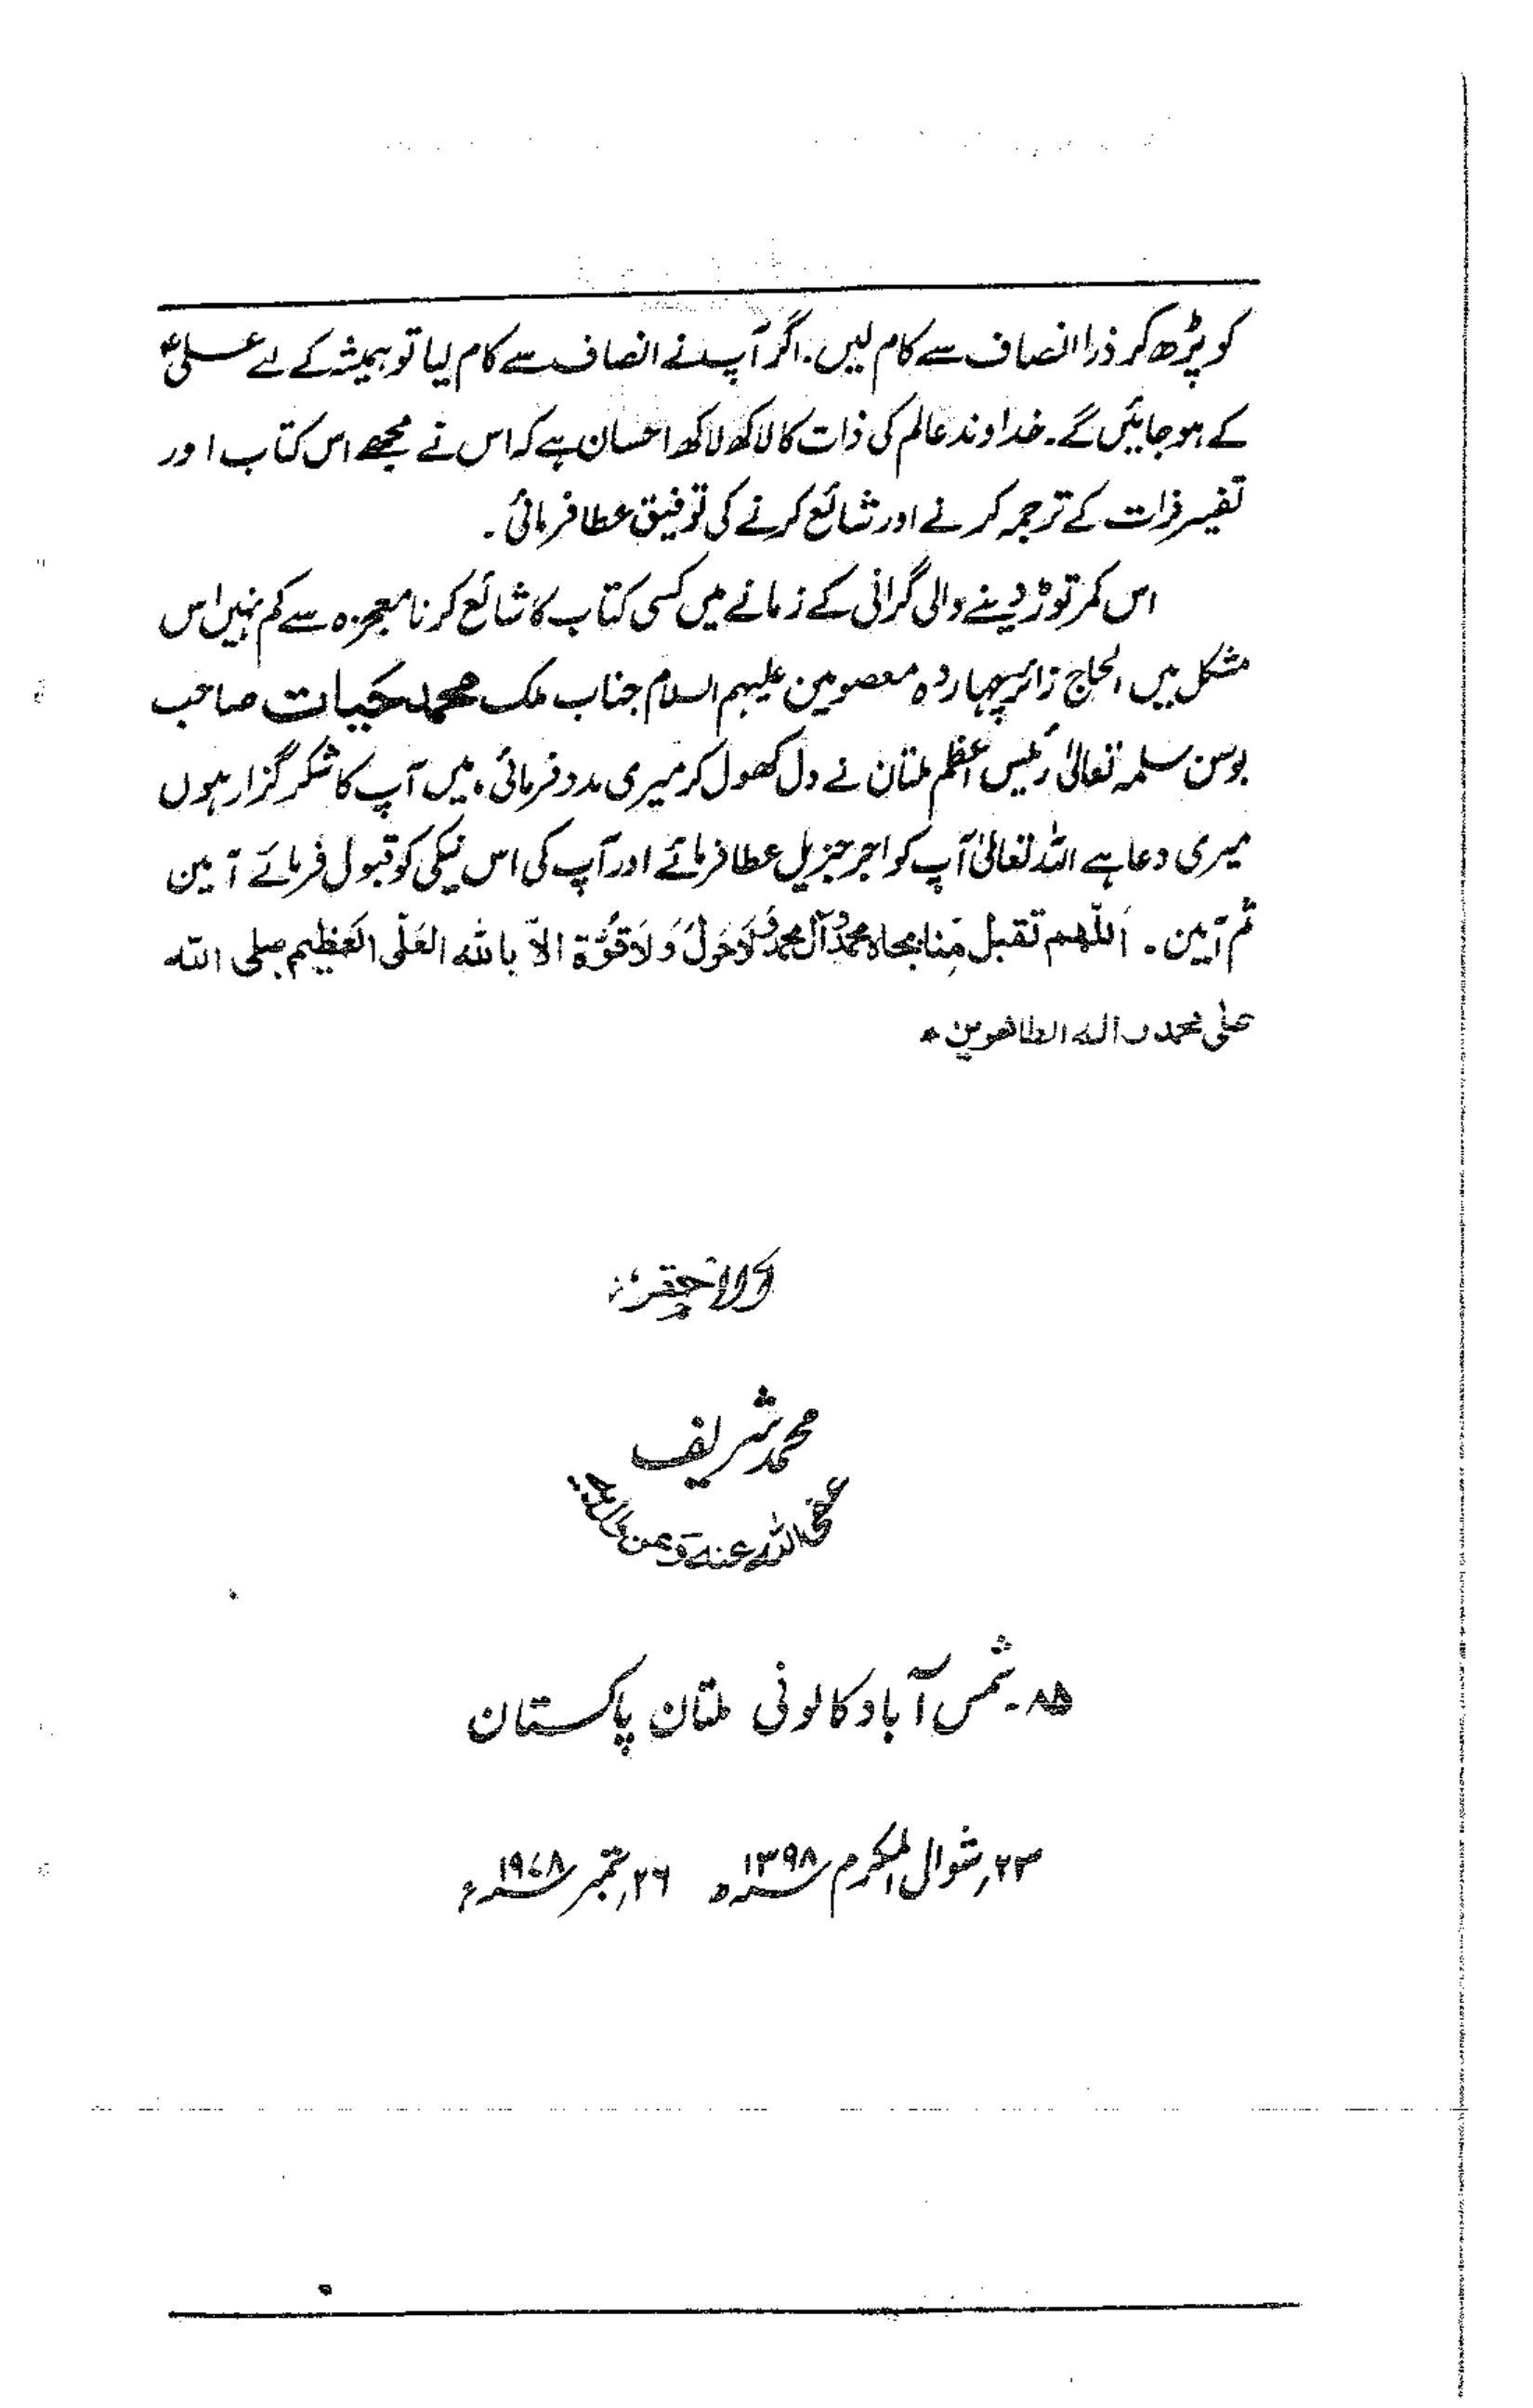 کو پڑھ کر ذرا انصاف سے کام لیں۔ اگر آپ نے انصاف سے کام لیا تو ہمیشہ کے لئے علیؑ
کے ہو جائیں گے۔ خداوند عالم کی ذات کا لاکھ لاکھ احسان ہے کہ اس نے مجھے اس کتاب اور
تفسیر فرات کے ترجمہ کرنے اور شائع کرنے کی توفیق عطا فرمائی۔
اس کمر توڑ دینے والی گرانی کے زمانے میں کسی کتاب کا شائع کرنا معجزہ سے کم نہیں اس
مشکل میں الحاج زائر چہاردہ معصومین علیہم السلام جناب ملک محمد حیات صاحب
بوسن سلمہ تعالیٰ رئیس اعظم ملتان نے دل کھول کر میری مدد فرمائی، میں آپ کا شکر گزار ہوں
میری دعا ہے اللہ تعالیٰ آپ کو اجر جزیل عطا فرمائے اور آپ کی اس نیکی کو قبول فرمائے آمین
ثم آمین۔ اَللّٰھم تقبل مِنا بجاہ محمدؐ وآل محمدؐ وَلَاحَولَ وَلَاقُوَّة الاّ باللہ العَلّی العَظیم صلی اللہ
علی محمد و آلہ الطاھرین
الاحقر:
محمد شریف
عفی اللہ عنہ وعن والدیہ
۸۵۔ شمس آباد کالونی ملتان پاکستان
۲۳؍ شوال المکرم ۱۳۹۸ھ ۲۶؍ ستمبر ۱۹۷۸ء